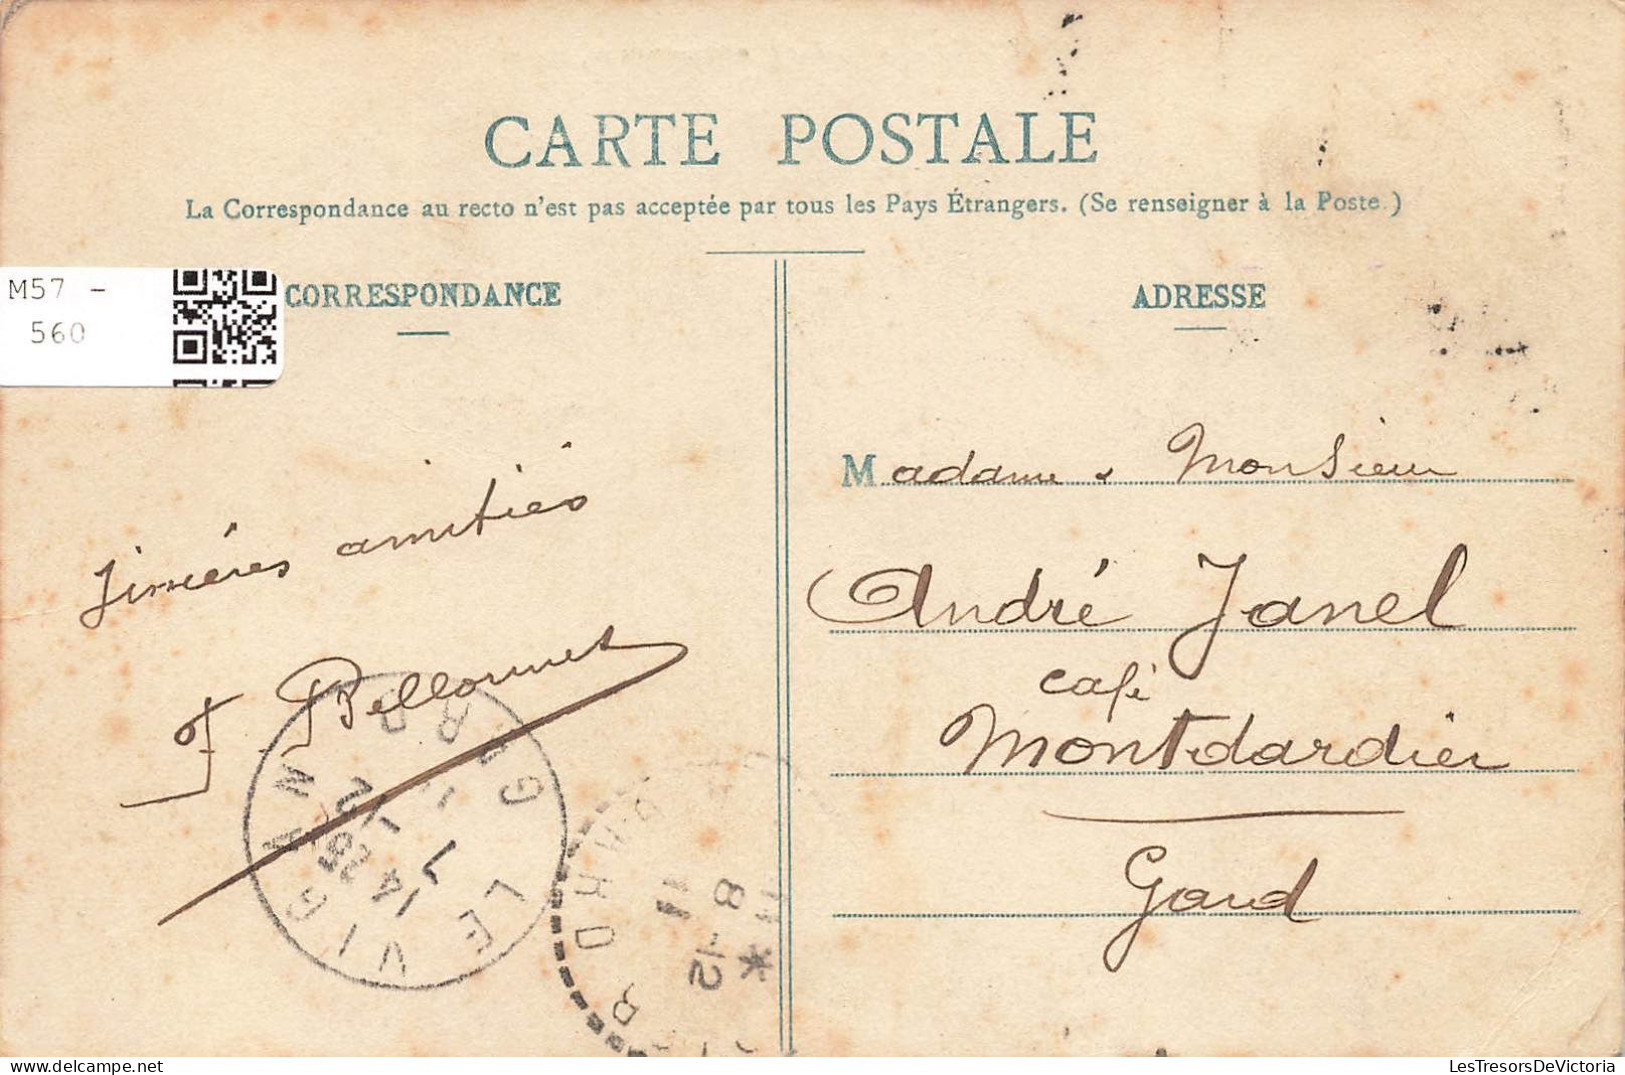 CARTE POSTALE
La Correspondance au recto n'est pas acceptée par tous les Pays Étrangers. (Se renseigner à la Poste.)
M57 -
560
CORRESPONDANCE
Sincères amitiés
F. Bellonnet
LE VIGAN
GARD
14 25
7 - 12
11
GARD
8 - 12
11
*
ADRESSE
Madame & Monsieur
André Janel
café
Montdardier
Gard
LesTresorsDeVictoria
LesTresorsDeVictoria